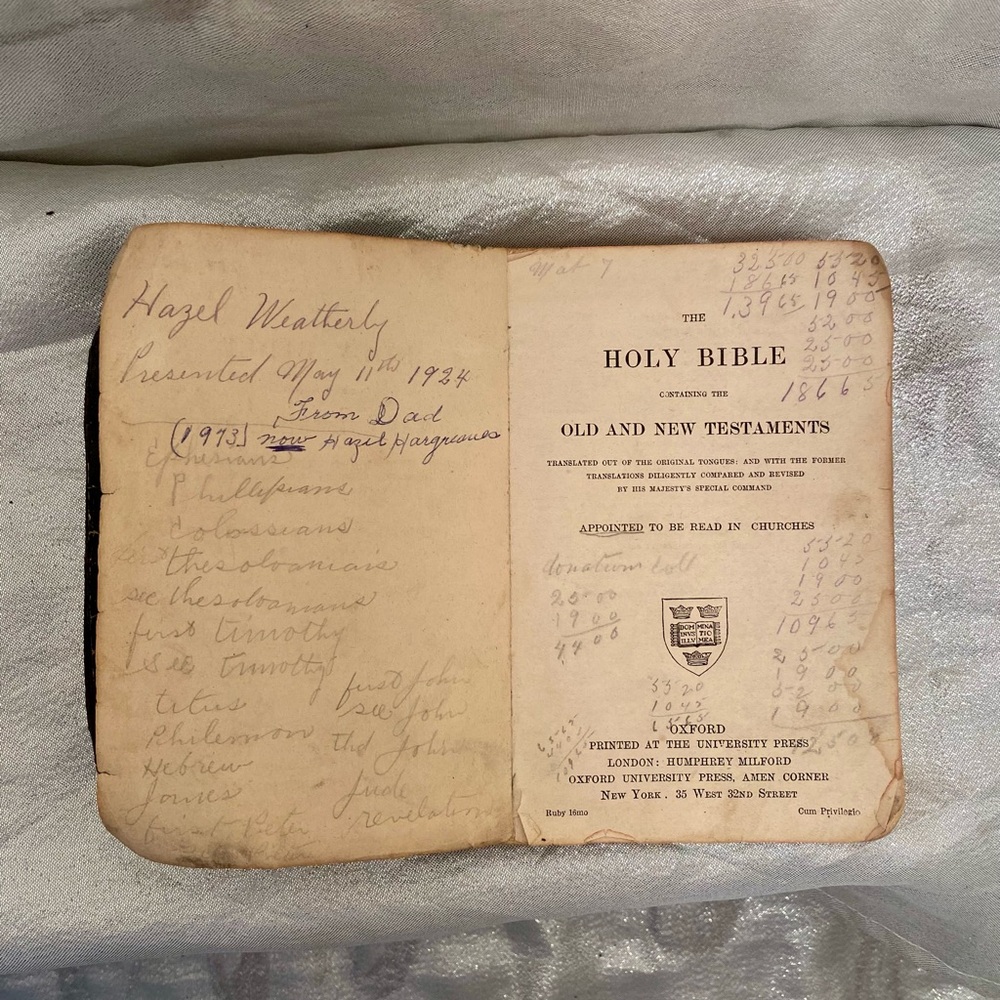 Hazel Weatherly
Presented May 11th 1924
From Dad
(1973) now Hazel Hargreaves
Ephesians
Phillipians
Colossians
thesoloanians
sec thesoloanians
first timothy
sec timothy
titus
Philemon
Hebrew
James
first Peter
first John
sec John
thd John
Jude
revelation
Mat 7
32500 5520
18665 1045
1,3965 1900
5200
2500
2500
18665
THE
HOLY BIBLE
CONTAINING THE
OLD AND NEW TESTAMENTS
TRANSLATED OUT OF THE ORIGINAL TONGUES: AND WITH THE FORMER
TRANSLATIONS DILIGENTLY COMPARED AND REVISED
BY HIS MAJESTY'S SPECIAL COMMAND
APPOINTED TO BE READ IN CHURCHES
donations coll
2500
1900
4400
5520
1045
1900
2500
10965
2500
1900
5200
1900
DOMI MINA
NVS TIO
ILLV MEA
5520
1045
6565
OXFORD
PRINTED AT THE UNIVERSITY PRESS
LONDON: HUMPHREY MILFORD
OXFORD UNIVERSITY PRESS, AMEN CORNER
NEW YORK. 35 WEST 32ND STREET
Ruby 16mo
Cum Privilegio